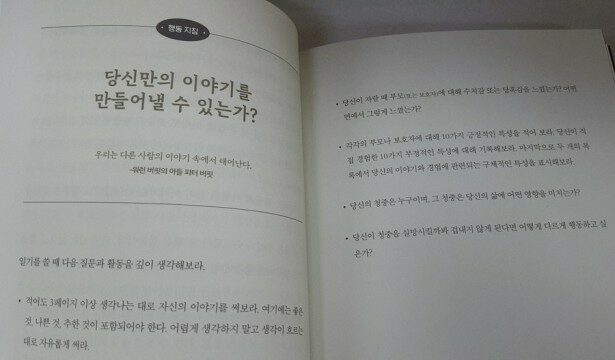 행동 지침
당신만의 이야기를
만들어낼 수 있는가?
우리는 다른 사람의 이야기 속에서 태어난다.
-워런 버핏의 아들 피터 버핏
일기를 쓸 때 다음 질문과 활동을 깊이 생각해보라.
• 적어도 3페이지 이상 생각나는 대로 자신의 이야기를 써보라. 여기에는 좋은
것, 나쁜 것, 추한 것이 포함되어야 한다. 어렵게 생각하지 말고 생각이 흐르는
대로 자유롭게 써라.
• 당신이 자랄 때 부모(또는 보호자)에 대해 수치감 또는 당혹감을 느꼈는가? 어떤
면에서 그렇게 느꼈는가?
• 각각의 부모나 보호자에 대해 10가지 긍정적인 특성을 적어 보라. 당신이 직
접 경험한 10가지 부정적인 특성에 대해 기록해보라. 마지막으로 두 개의 목
록에서 당신의 이야기와 경험에 관련되는 구체적인 특성을 표시해보라.
• 당신의 청중은 누구이며, 그 청중은 당신의 삶에 어떤 영향을 미치는가?
• 당신이 청중을 실망시킬까봐 겁내지 않게 된다면 어떻게 다르게 행동하고 싶
은가?